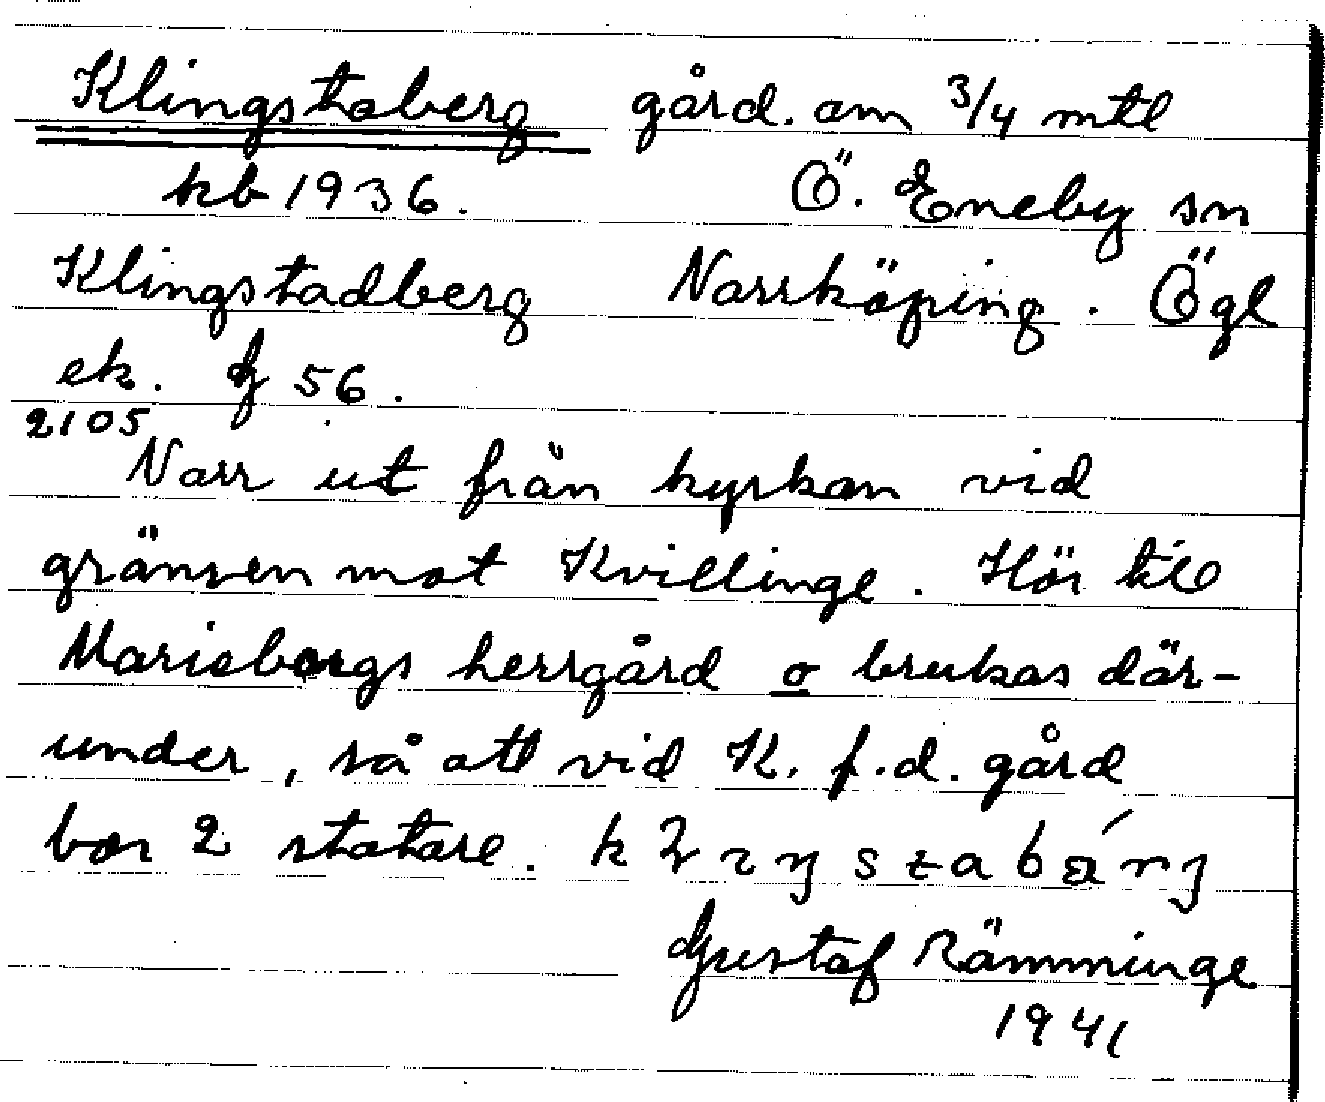 Klingstaberg gård. om 3/4 mtl
kb 1936. Ö. Eneby sn
Klingstadberg Norrköping. Ögl
ek. G 56.
2105
Norr ut från kyrkan vid
gränsen mot Kvillinge. Hör till
Marieborgs herrgård o brukas där-
under, så att vid K. f.d. gård
bor 2 statare.
Gustaf Rämminge
1941